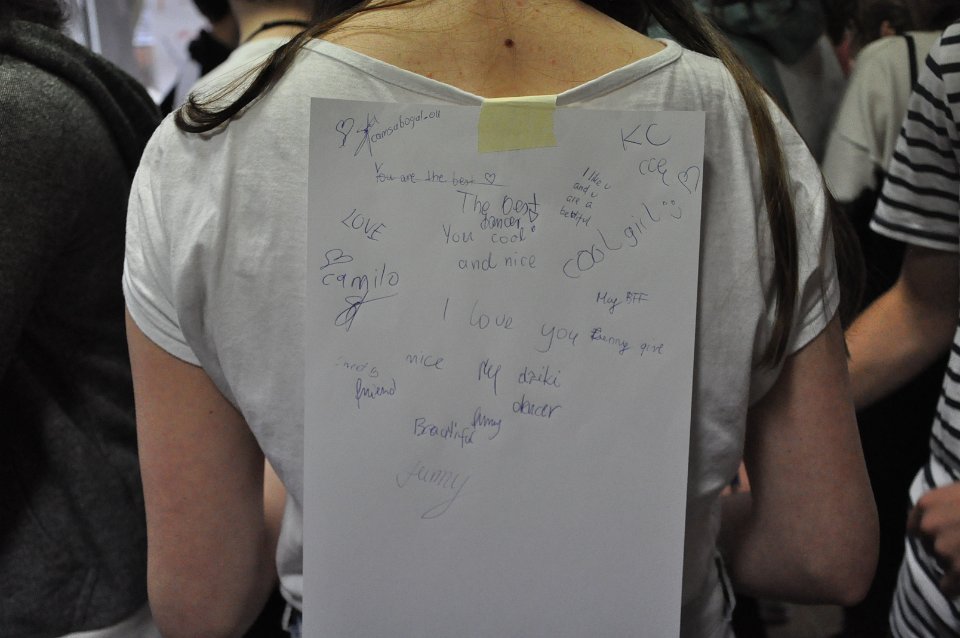 camsabogal.ou
KC
You are the best
I like u
and u
are a
The best
dancer
LOVE
You cool
and nice
cool girl
camilo
May BFF
I love you
Funny girl
nice
My dziki
dancer
friend
funny
Beautiful
funny